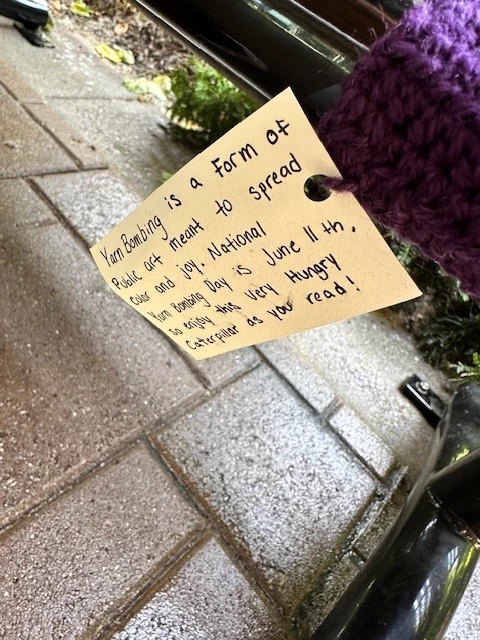 Yarn Bombing is a Form of
Public art meant to spread
color and joy. National
Yarn Bombing Day is June 11th,
so enjoy this very Hungry
Caterpillar as you read!